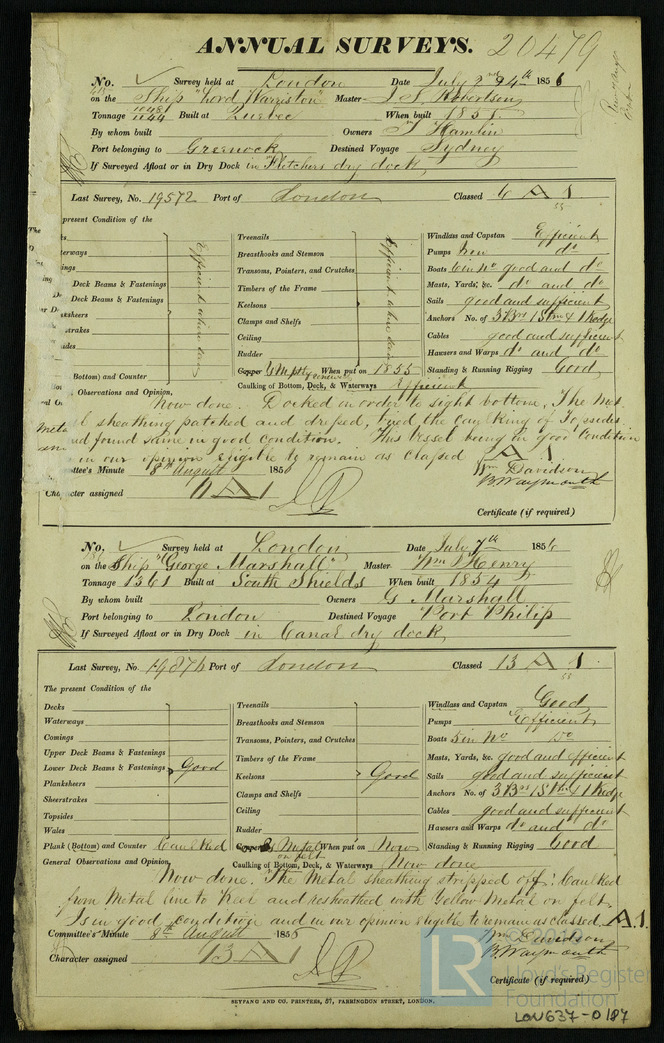 ANNUAL SURVEYS. 20479
No. ✓ Survey held at London Date July 2nd & 4th 1856
on the Ship "Lord Warriston" Master J S Robertson
Tonnage 1048 1/1144 Built at Quebec When built 1851
By whom built Owners T Hamlin
Port belonging to Greenock Destined Voyage Sydney
If Surveyed Afloat or in Dry Dock in Fletchers dry dock
Last Survey, No. 19572 Port of London Classed 6 A 1
55
present Condition of the
Treenails
Windlass and Capstan Efficient
Breasthooks and Stemson
Pumps do
Transoms, Pointers, and Crutches
Boats good and do
Deck Beams & Fastenings
Timbers of the Frame
Masts, Yards, &c. do and do
Deck Beams & Fastenings
Keelsons
Sails good and sufficient
Clamps and Shelfs
Anchors No. of 3 Brs 1 Stm & 1 Kedge
Ceiling
Cables good and sufficient
Rudder
Hawsers and Warps do and do
Bottom) and Counter
Copper When put on 1855
Standing & Running Rigging Good
Observations and Opinion,
Caulking of Bottom, Deck, & Waterways Efficient
Now done. Docked in order to sight bottom, The Met
sheathing patched and dressed, tried the caulking of Topsides
and found same in good condition. This vessel being in good condition
in our opinion eligible to remain as classed A 1
Committee's Minute 8th August 1856 Wm Davidson
B. Waymouth
Character assigned 6 A 1
Certificate (if required)
No. ✓ Survey held at London Date July 7th 1856
on the Ship "George Marshall" Master Wm Henry
Tonnage 1361 Built at South Shields When built 1854
By whom built Owners G Marshall
Port belonging to London Destined Voyage Port Philip
If Surveyed Afloat or in Dry Dock in Canal dry dock
Last Survey, No. 14876 Port of London Classed 13 A 1
55
The present Condition of the
Decks
Treenails
Windlass and Capstan Good
Waterways
Breasthooks and Stemson
Pumps Efficient
Comings
Transoms, Pointers, and Crutches
Boats 5 in No Do
Upper Deck Beams & Fastenings
Timbers of the Frame
Masts, Yards, &c. good and efficient
Lower Deck Beams & Fastenings Good
Keelsons Good
Sails good and sufficient
Planksheers
Clamps and Shelfs
Anchors No. of 3 Brs 1 Stm & 1 Kedge
Sheerstrakes
Ceiling
Cables good and sufficient
Topsides
Wales
Rudder
Hawsers and Warps do and do
Plank (Bottom) and Counter Caulked
Y Metal on felt When put on Now
Standing & Running Rigging Good
General Observations and Opinion,
Caulking of Bottom, Deck, & Waterways Now done
Now done. The Metal sheathing stripped off. Caulked
from Metal line to Keel and resheathed with Yellow Metal on felt
Is in good condition and in our opinion eligible to remain as classed A.1.
Committee's Minute 8th August 1856 Wm Davidson
B. Waymouth
Character assigned 13 A 1
Certificate (if required)
SEYFANG AND CO. PRINTERS, 57, FARRINGDON STREET, LONDON.
LR © 2019
Lloyd's Register
Foundation
LON637-0187